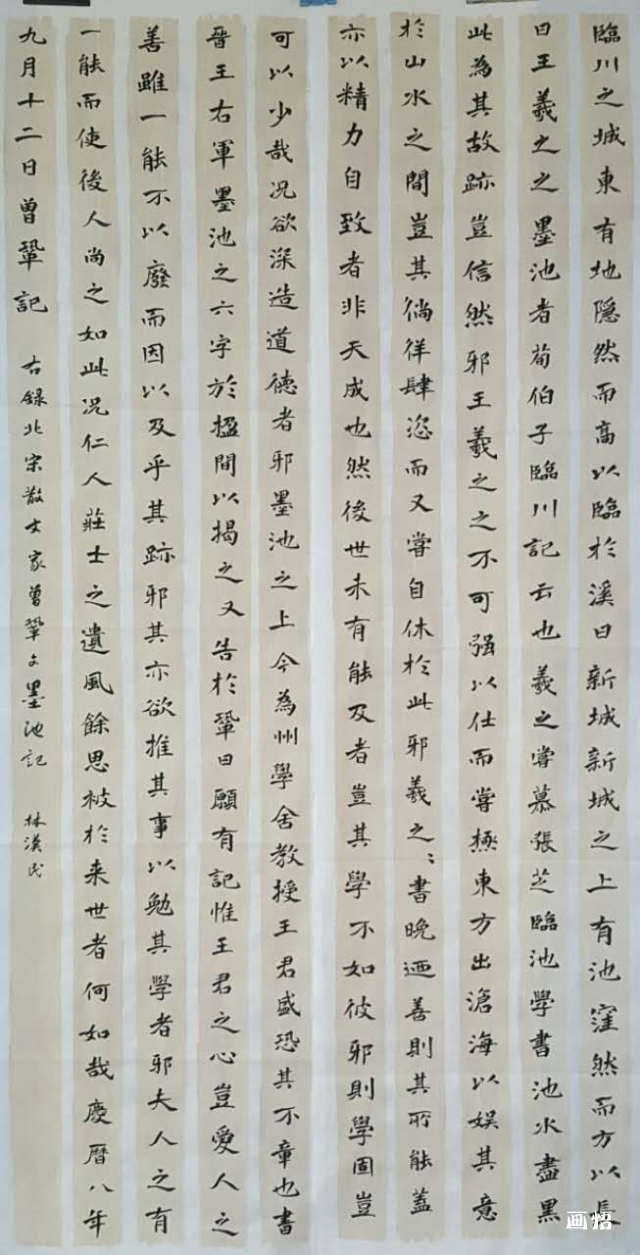 臨川之城東有地隱然而高以臨於溪曰新城新城之上有池窪然而方以長
曰王羲之之墨池者荀伯子臨川記云也羲之嘗慕張芝臨池學書池水盡黑
此為其故跡豈信然邪王羲之之不可强以仕而嘗極東方出滄海以娱其意
於山水之間豈其徜徉肆恣而又嘗自休於此邪羲之〻書晚迺善則其所能蓋
亦以精力自致者非天成也然後世未有能及者豈其學不如彼邪則學固豈
可以少哉况欲深造道德者邪墨池之上今為州學舍教授王君盛恐其不章也書
晉王右軍墨池之六字於楹間以揭之又告於鞏曰願有記惟王君之心豈愛人之
善雖一能不以廢而因以及乎其跡邪其亦欲推其事以勉其學者邪夫人之有
一能而使後人尚之如此况仁人莊士之遺風餘思被於来世者何如哉慶曆八年
九月十二日曾鞏記 右録北宋散文家曾鞏文墨池記 林漢民
画悟